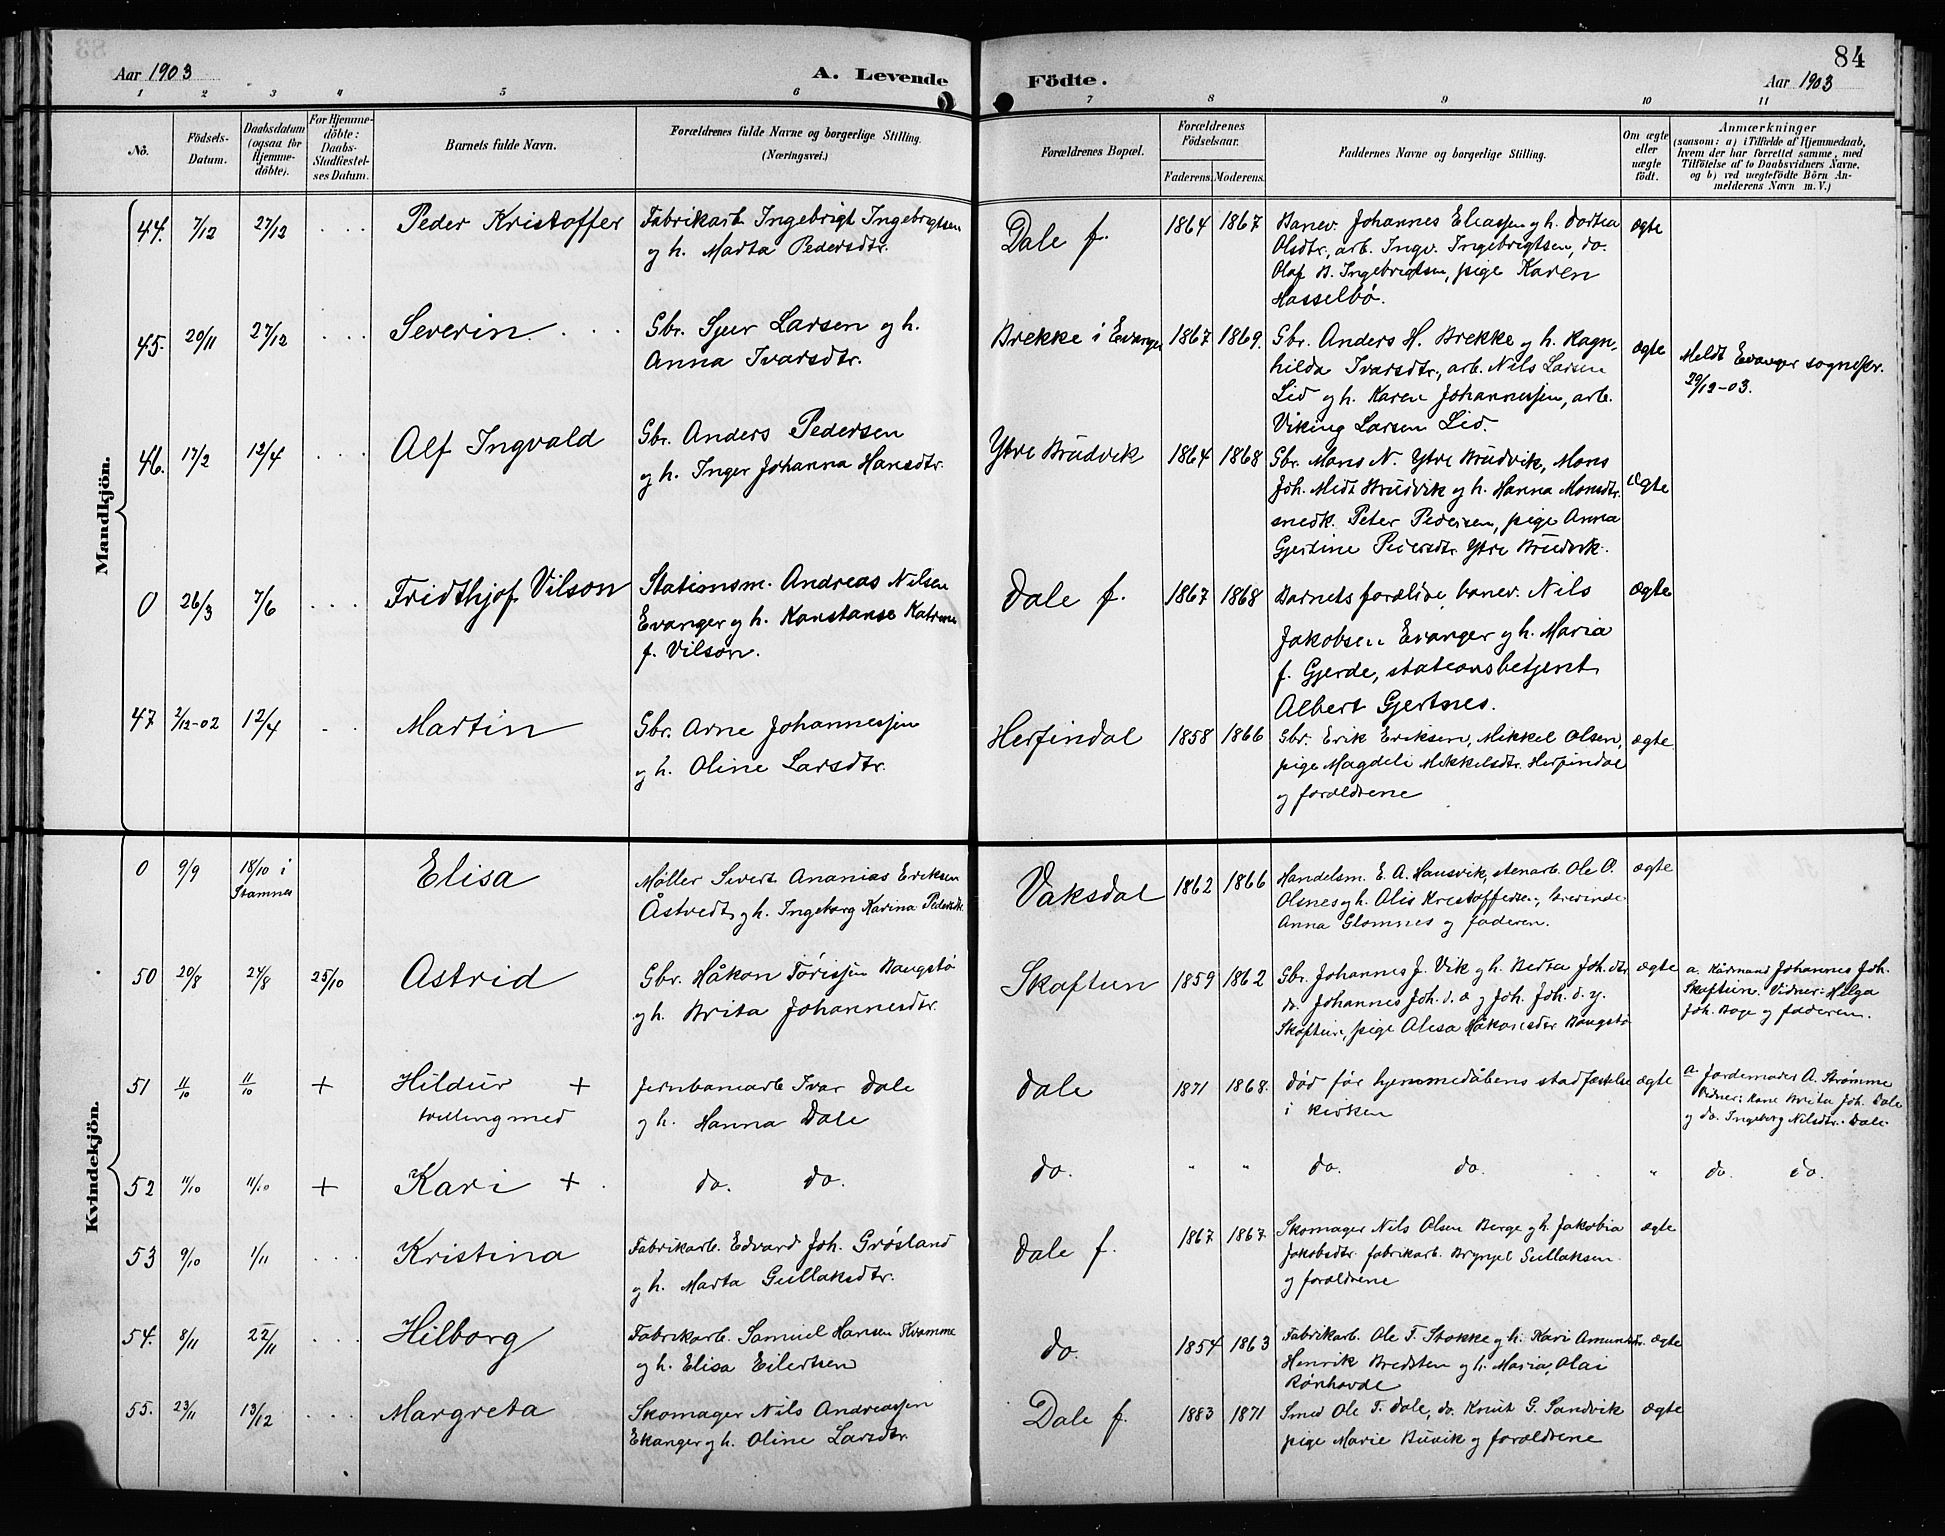 Aar 1903
A. Levende
Födte.
84
Aar 1903
1 2 3 4 5 6 7 8 9 10 11
No.
Födsels-Datum.
Daabsdatum (ogsaa for Hjemme-döbte).
For Hjemme-döbte: Daabs-Stadfæstel-ses Datum.
Barnets fulde Navn.
Forældrenes fulde Navne og borgerlige Stilling. (Næringsvei.)
Forældrenes Bopæl.
Forældrenes Födselsaar.
Faderens. Moderens.
Faddernes Navne og borgerlige Stilling.
Om ægte eller uægte födt.
Anmærkninger
(saasom: a) i Tilfælde af Hjemmedaab,
hvem der har forrettet samme, med
Tilföielse af to Daabsvidners Navne,
og b) ved uægtefödte Börn An-
melderens Navn m. V.)
Mandkjön.
44. 7/12 27/12 Peder Kristoffer
Fabrikarb. Ingebrigt Ingebrigtsen
og h. Marta Pedersdtr.
Dale f. 1864 1867
Banev. Johannes Eliassen og h. Dortea
Olsdtr., arb. Ingv. Ingebrigtsen, do.
Olaf B. Ingebrigtsen, pige Karen
Hasselbø.
ægte
45. 20/11 27/12 Severin
Gbr. Sjur Larsen og h.
Anna Ivarsdtr.
Brekke i Evanger 1867 1869.
Gbr. Anders H. Brekke og h. Ragn-
hilda Ivarsdtr., arb. Nils Larsen
Lid og h. Karen Johannessen, arb.
Viking Larsen Lid.
ægte
Meldt Evanger sognepr.
29/12-03.
46. 17/2 12/4 Alf Ingvald
Gbr. Anders Pedersen
og h. Inger Johanna Hansdtr.
Ytre Brudvik 1864 1868
Gbr. Mons N. Ytre Brudvik, Mons
Joh. Midt Brudvik og h. Hanna Monsdtr.
snedk. Peter Pedersen, pige Anna
Gjertine Pedersdtr. Ytre Brudvik.
ægte
0 26/3 7/6 Fridthjof Vilson
Stationsm. Andreas Nilsen
Evanger og h. Konstanse Katrine
f. Vilson.
Dale f. 1867 1868
Barnets forældre, banev. Nils
Jakobsen Evanger og h. Maria
f. Gjerde, stationsbetjent
Albert Gjertnes.
ægte
47 2/12-02 12/4 Martin
Gbr. Arne Johannessen
og h. Oline Larsdtr.
Herfindal 1858 1866
Gbr. Erik Eriksen, Mikkel Olsen,
pige Magdeli Mikkelsdtr. Herfindal
og forældrene
ægte
Kvindekjön.
0 9/9 18/10 i Stamnes Elisa
Møller Sivert Ananias Eriksen
Åstvedt og h. Ingeborg Karina Pedersdtr.
Vaksdal 1862 1866
Handelsm. E. A. Hansvik, stenarb. Ole O.
Olsnes og h. Alis Kristoffersen,
Anna Glomnes og faderen.
ægte
50 20/8 24/8 25/10 Astrid
Gbr. Håkon Tørissen Baugstø
og h. Brita Johannesdtr.
Skaftun 1859 1862
Gbr. Johannes J. Vik og h. Berta Joh.dtr.
do. Johannes Joh. d. æ og Joh. Joh. d. y.
Skaftun, pige Alisa Håkonsdtr Baugstø
ægte
a. Kårmand Johannes Joh.
Skaftun. Vidner: Helga
Joh. Boge og faderen.
51 11/10 11/10 + Hildur +
tvilling med
Jernbanearb. Ivar Dale
og h. Hanna Dale
Dale 1871 1868.
død før hjemmedåbens stadfæstelse
i kirken
ægte
a. Jordemoder A. Strømme
Vidner: Kone Brita Joh. Dale
og do. Ingeborg Nilsdtr. Dale.
52 11/10 11/10 + Kari +
do. do.
do. " "
do. do.
"
do. do.
53 9/10 1/11 Kristina
Fabrikarb. Edvard Joh. Grøsland
og h. Marta Gullaksdtr.
Dale f. 1867 1867.
Skomager Nils Olsen Berge og h. Jakobia
Jakobsdtr. fabrikarb. Brynjel Gullaksen
og forældrene
ægte
54. 8/11 22/11 Hilborg
Fabrikarb. Samuel Hansen Kvamme
og h. Elisa Eilertsen
do. 1854 1863
Fabrikarb. Ole T. Stokke og h. Kari Amundsdtr.
Henrik Bredsten og h. Maria, Olai
Rønhovde
ægte
55. 23/11 13/12 Margreta
Skomager Nils Andreassen
Ekanger og h. Oline Larsdtr.
Dale f. 1883 1871
Smed Ole T. Dale, do. Knut G. Sandvik
pige Marie Buvik og forældrene
ægte